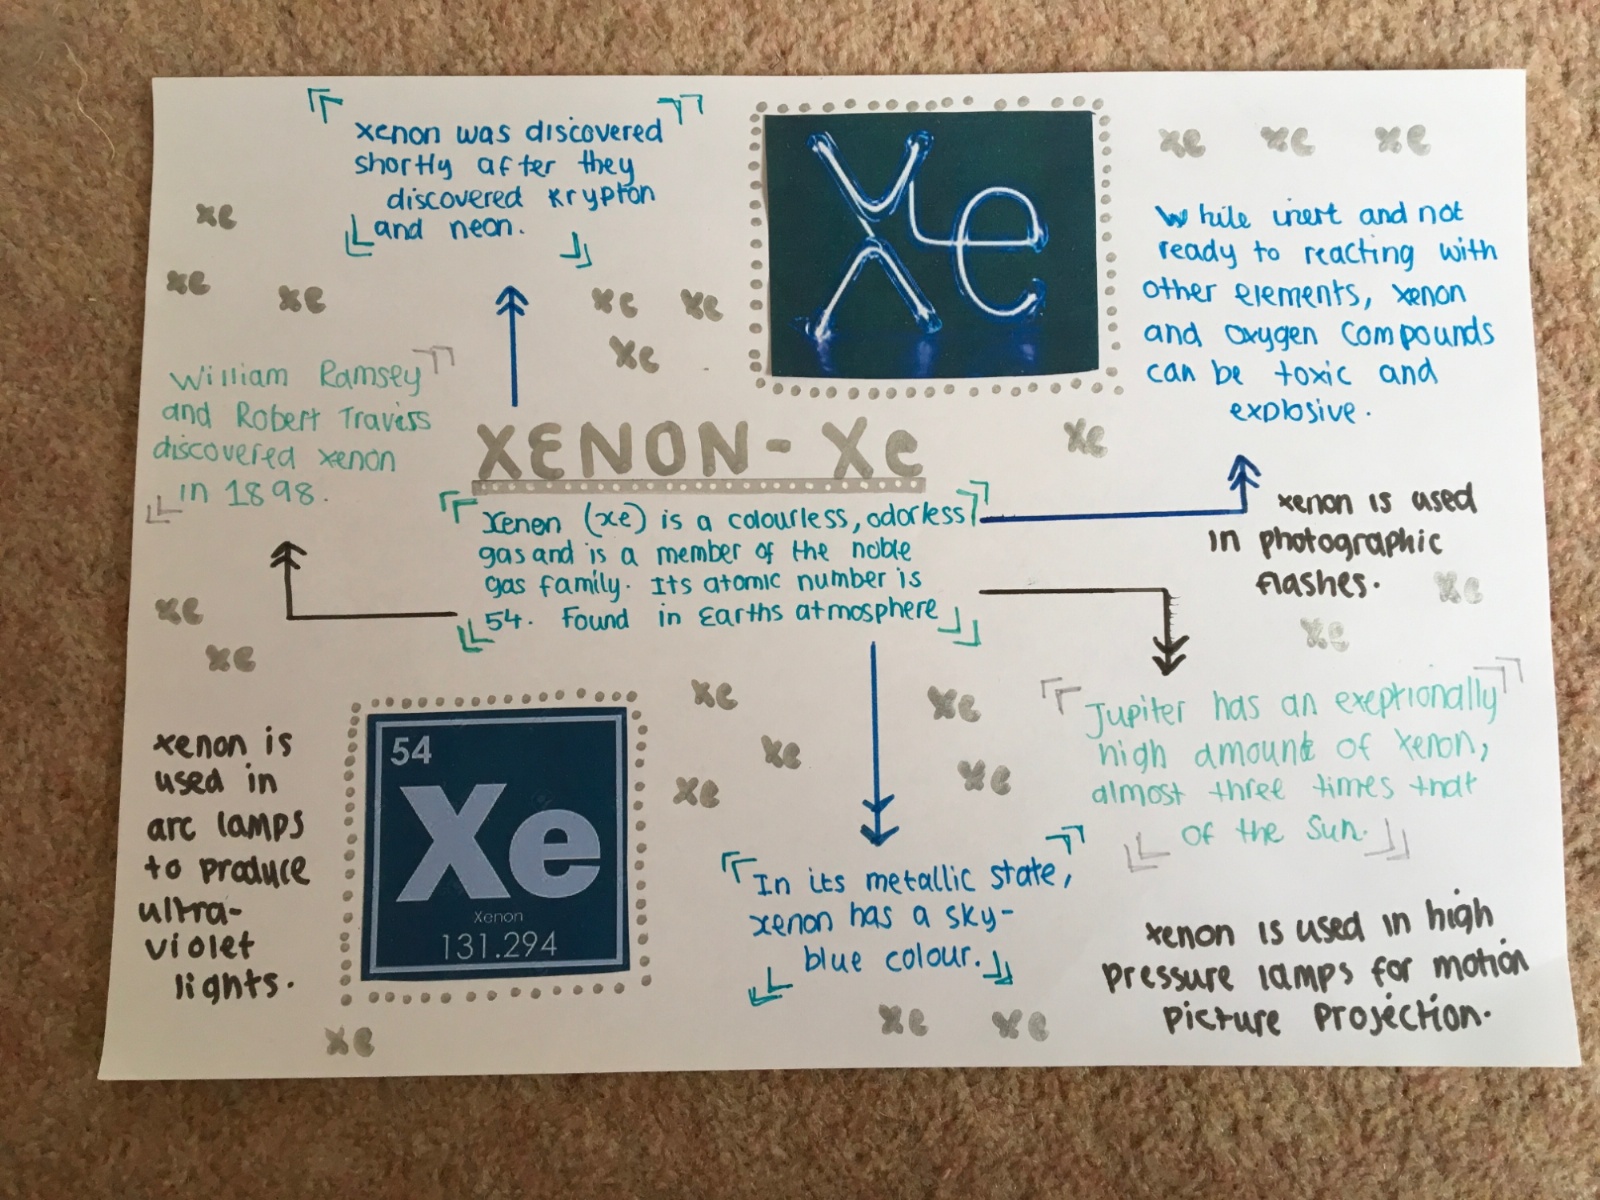 xenon was discovered
shortly after they
discovered krypton
and neon.
Xe
xe xe xe
While inert and not
ready to reacting with
other elements, xenon
and oxygen compounds
can be toxic and
explosive.
xe
xe
xe
xe xe
xe
William Ramsey
and Robert Traviss
discovered xenon
in 1898.
XENON - Xe
xe
Xenon (xe) is a colourless, odorless
gas and is a member of the noble
gas family. Its atomic number is
54. Found in Earths atmosphere
xenon is used
in photographic
flashes.
xe
xe
xe
xe
Jupiter has an exeptionally
high amount of xenon,
almost three times that
of the Sun.
xenon is
used in
arc lamps
to produce
ultra-
violet
lights.
54
Xe
Xenon
131.294
xe
xe
xe
xe
xe
In its metallic state,
xenon has a sky-
blue colour.
xenon is used in high
pressure lamps for motion
picture projection.
xe
xe xe